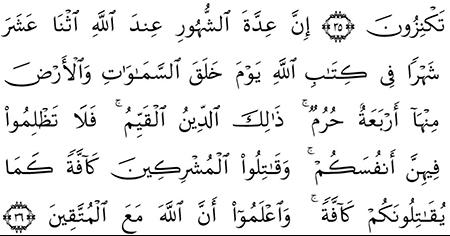 تَكْنِزُونَ ﴿٣٥﴾ إِنَّ عِدَّةَ ٱلشُّهُورِ عِندَ ٱللَّهِ ٱثْنَا عَشَرَ
شَهْرًا فِى كِتَٰبِ ٱللَّهِ يَوْمَ خَلَقَ ٱلسَّمَٰوَٰتِ وَٱلْأَرْضَ
مِنْهَآ أَرْبَعَةٌ حُرُمٌ ۚ ذَٰلِكَ ٱلدِّينُ ٱلْقَيِّمُ ۚ فَلَا تَظْلِمُوا۟
فِيهِنَّ أَنفُسَكُمْ ۚ وَقَٰتِلُوا۟ ٱلْمُشْرِكِينَ كَآفَّةً كَمَا
يُقَٰتِلُونَكُمْ كَآفَّةً ۚ وَٱعْلَمُوٓا۟ أَنَّ ٱللَّهَ مَعَ ٱلْمُتَّقِينَ ﴿٣٦﴾